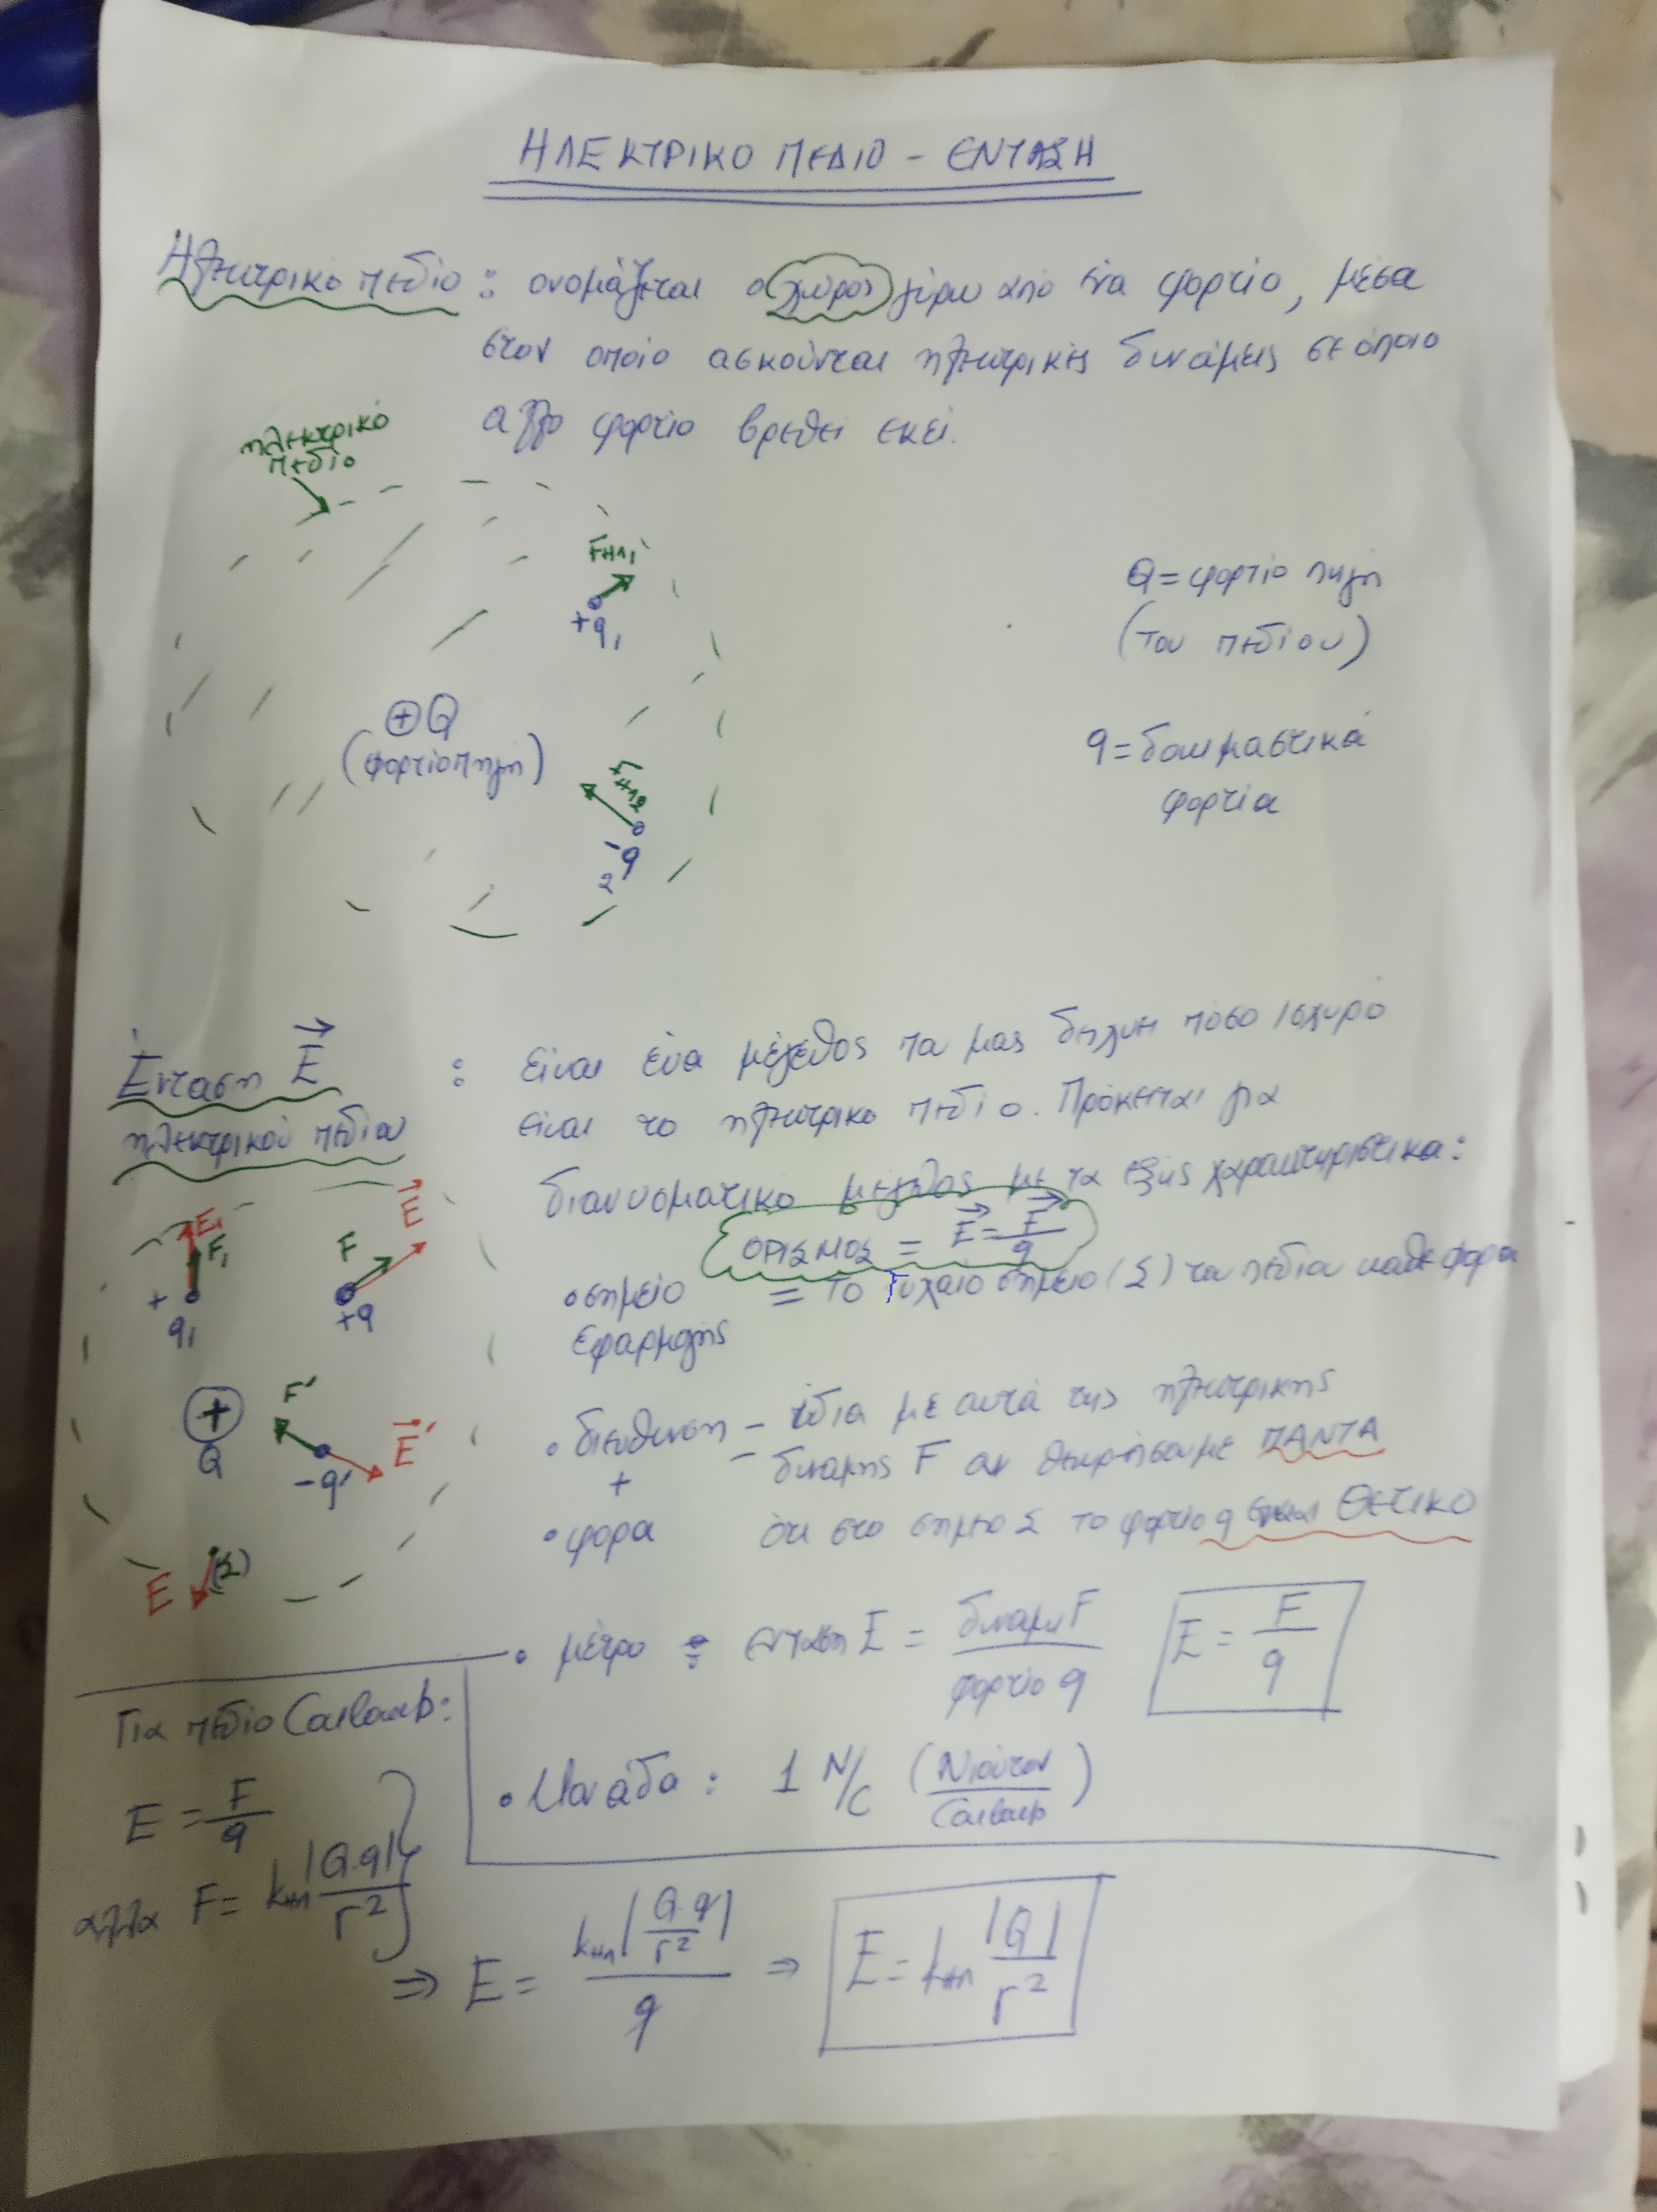 ΗΛΕΚΤΡΙΚΟ ΠΕΔΙΟ - ΕΝΤΑΣΗ
Ηλεκτρικό πεδίο : ονομάζεται ο χώρος γύρω από ένα φορτίο, μέσα
στον οποίο ασκούνται ηλεκτρικές δυνάμεις σε όποιο
άλλο φορτίο βρεθεί εκεί.
ηλεκτρικό
πεδίο
FΗΛ1
+q1
⊕Q
(φορτίο πηγή)
FΗΛ2
-q2
Q = φορτίο πηγή
(του πεδίου)
q = δοκιμαστικά
φορτία
Ένταση E :
ηλεκτρικού πεδίου
είναι ένα μέγεθος που μας δηλώνει πόσο ισχυρό
είναι το ηλεκτρικο πεδίο. Πρόκειται για
διανυσματικό μέγεθος με τα εξής χαρακτηριστικα:
ΟΡΙΣΜΟΣ = E = F/q
• σημείο = το τυχαίο σημείο (Σ) του πεδίου κάθε φορα
εφαρμογής
• διεύθυνση - ίδια με αυτά της ηλεκτρικης
+ - δυναμης F αν θεωρήσουμε ΠΑΝΤΑ
• φορα ότι στο σημειο Σ το φορτίο q είναι ΘΕΤΙΚΟ
E1
F1
+q1
F
E
+q
+
Q
F'
-q'
E'
E
(Σ)
• μέτρο : ενταση E = δυναμη F / φορτίο q E = F/q
• Μονάδα : 1 N/C (Νιούτον/Coulomb)
Για πεδίο Coulomb:
E = F/q
αλλα F = kηλ |Q·q|/r²
⇒ E = kηλ |Q·q/r²| / q ⇒ E = kηλ |Q|/r²